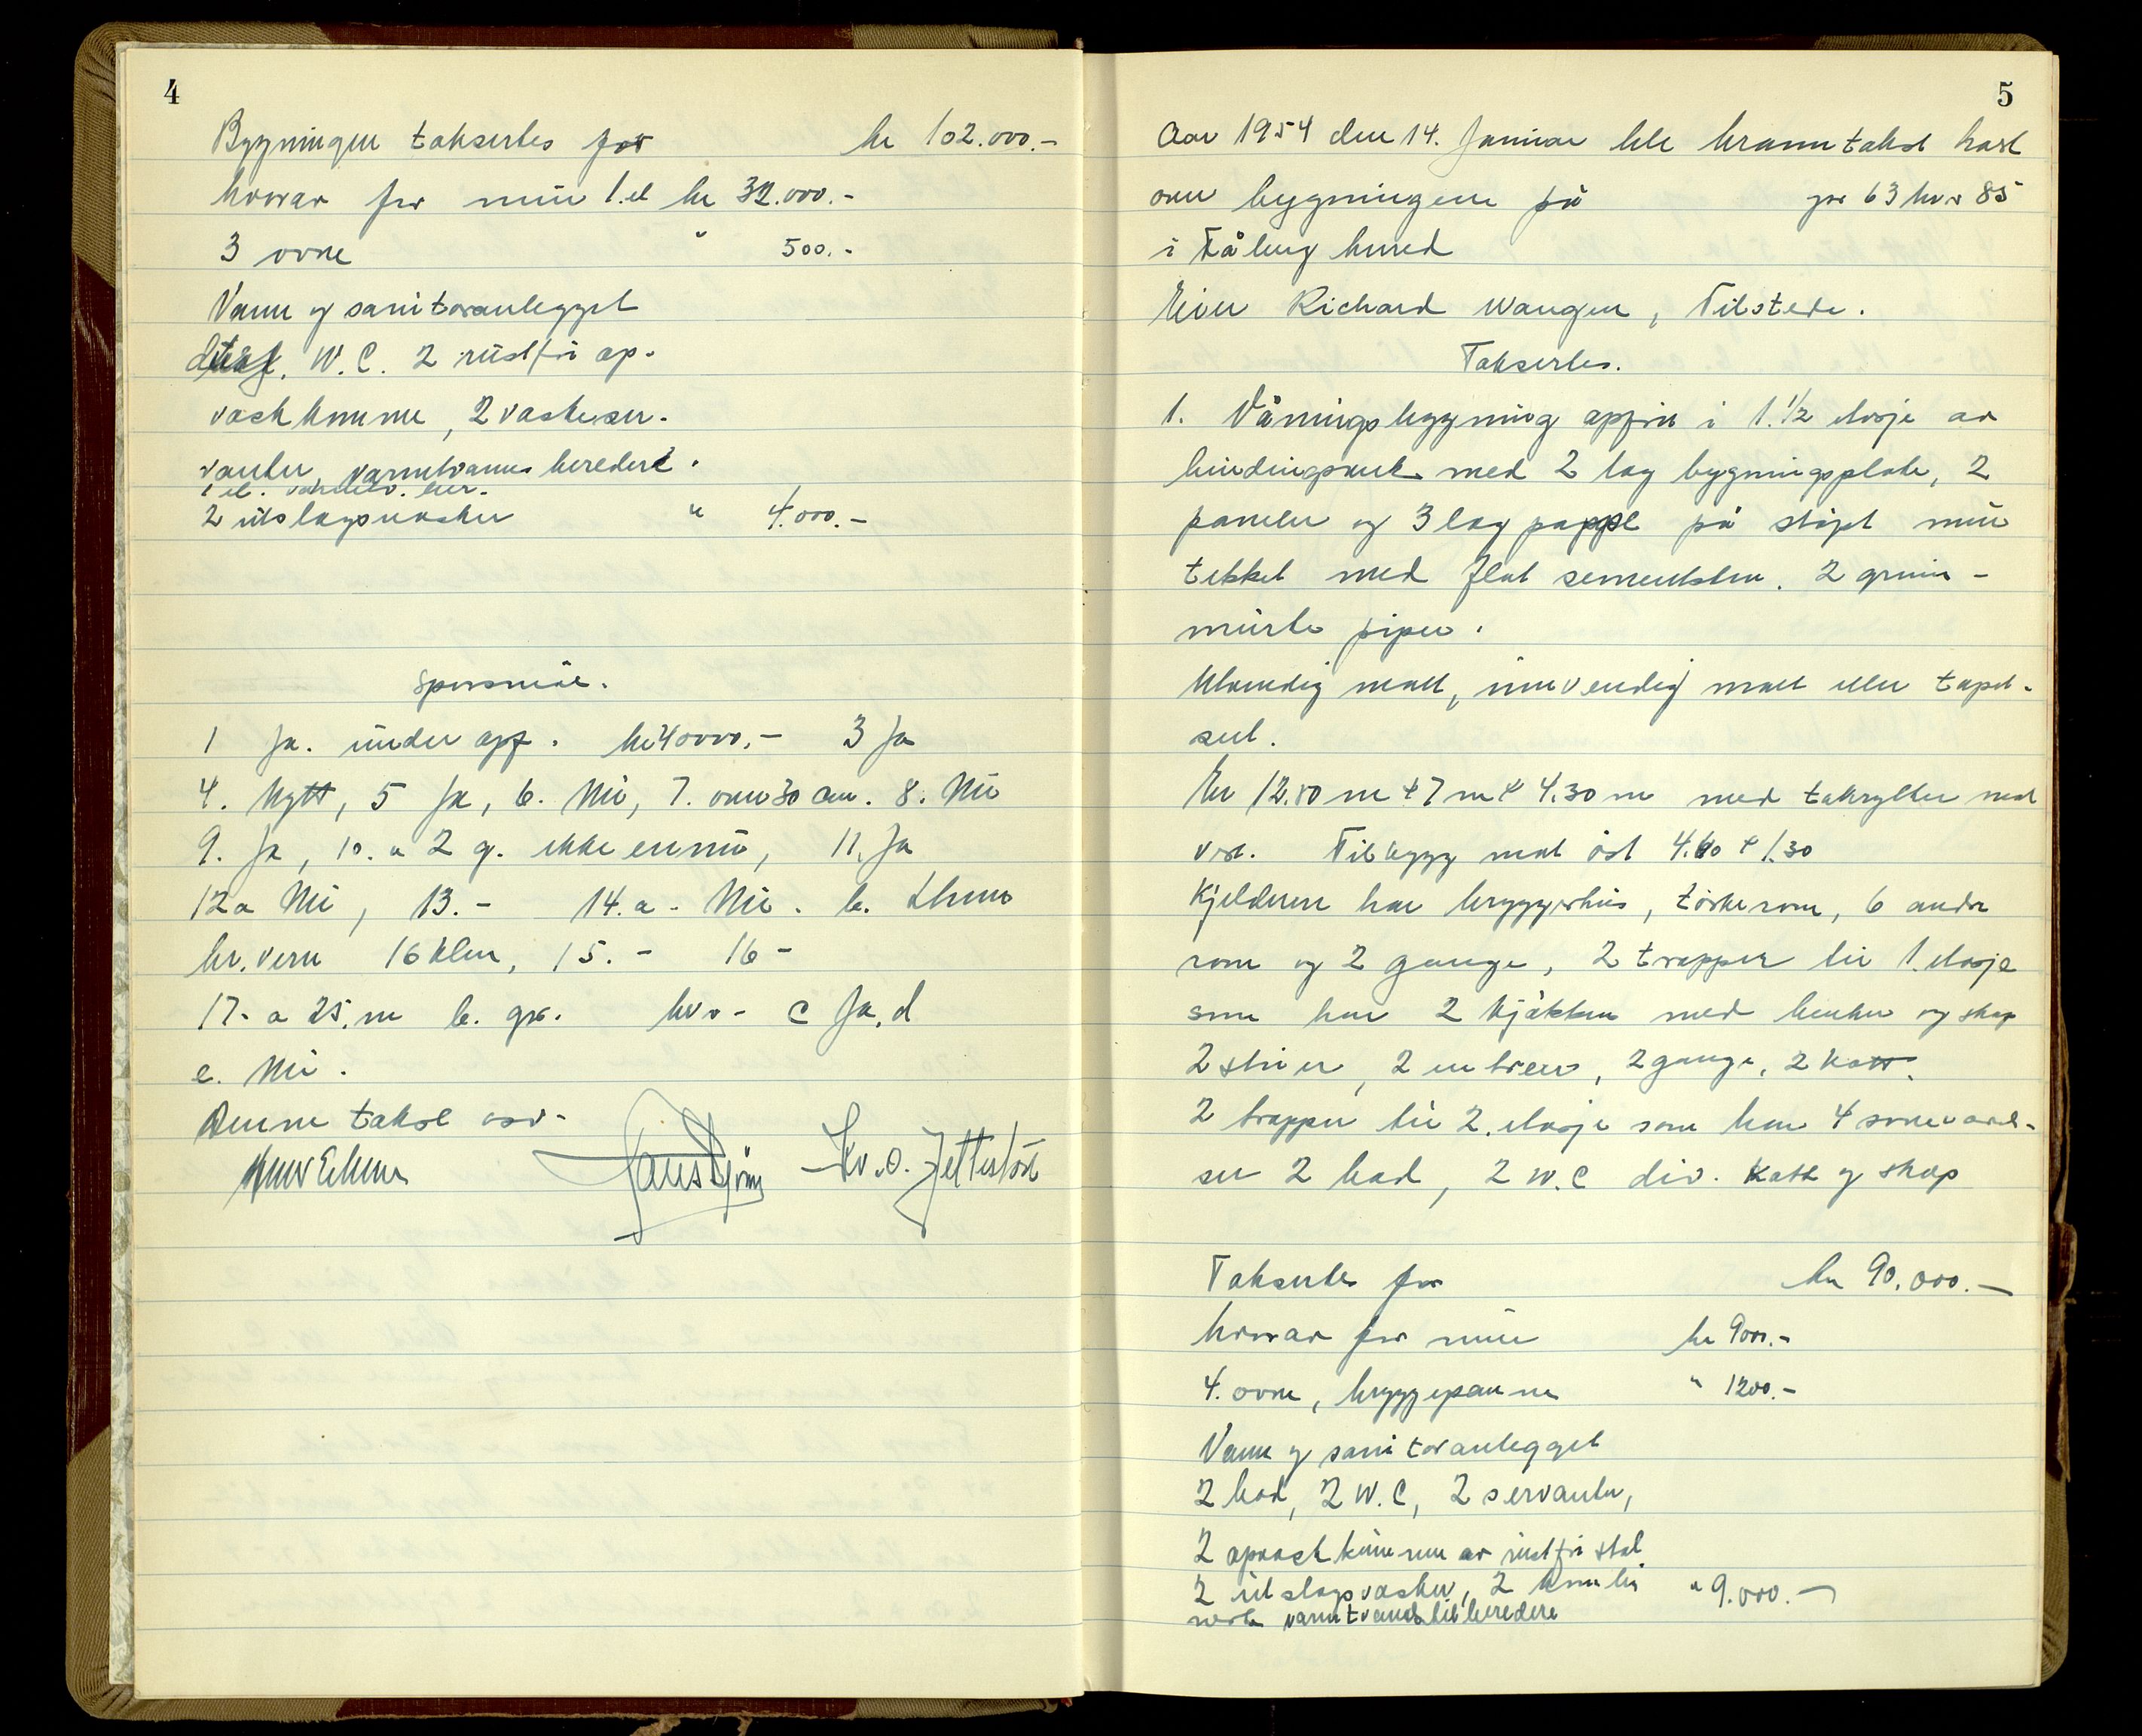 4
Bygningen takserles for kr 102.000.-
hvorav for mur 1.et kr 32.000.-
3 ovne " 500.-
Vann og sanitoranlegget
W.C. 2 rustfri op.
vaskkumme, 2 vaskeser.
vanter, varmtvanns beredere.
2 utslagsvasker " 4.000.-
Spørsmål.
1 Ja. under opf. kr 40000.- 3 Ja
4. Nytt, 5 Ja, 6. Nei, 7. over 30 cm. 8. Nei
9. Ja, 10. a 2 g. ikke ennu, 11. Ja
12a Nei, 13.- 14.a- Nei. b. Lhmr
br.vern 16 klm, 15.- 16-
17.- a 25.m b. gr. hvr- c Ja, d
e. Nei.
Denne takst osv-
5
Aar 1954 den 14. Januar ble branntakst holt
over bygningene på gr 63 bnr 85
i Fåberg herred
Eier Richard Wangen, Tilstede.
Takserles.
1. Våningsbygning opført i 1.1/2 etasje av
bindingsverk med 2 lag bygningsplate, 2
paneler og 3 lag papp på støpt mur
tekket med flat sementsten. 2 grunn-
murte piper.
Utvendig malt, innvendig malt eller tapet-
sert.
Er 12.80 m + 7 m + 4.30 m med takrytter mot
vest. Tilbygg mot øst 4.40 + 1.30
Kjelderen har bryggerhus, tørkerom, 6 andre
rom og 2 gange, 2 trapper til 1. etasje
som har 2 kjøkken med benker og skap
2 stuer, 2 entreer, 2 gange, 2 kott.
2 trapper til 2. etasje som har 4 soveværel-
ser 2 bad, 2 W.C div. kott og skap
Takserles for kr 90.000.-
hvorav for mur kr 9000.-
4. ovne, bryggepanne " 1200.-
Vann og sanitoranlegget
2 bad, 2 W.C, 2 servanter,
2 opvaskkumme av rustfri stål
2 utslagsvasker, 2 " 9.000.-
varmtvands beredere